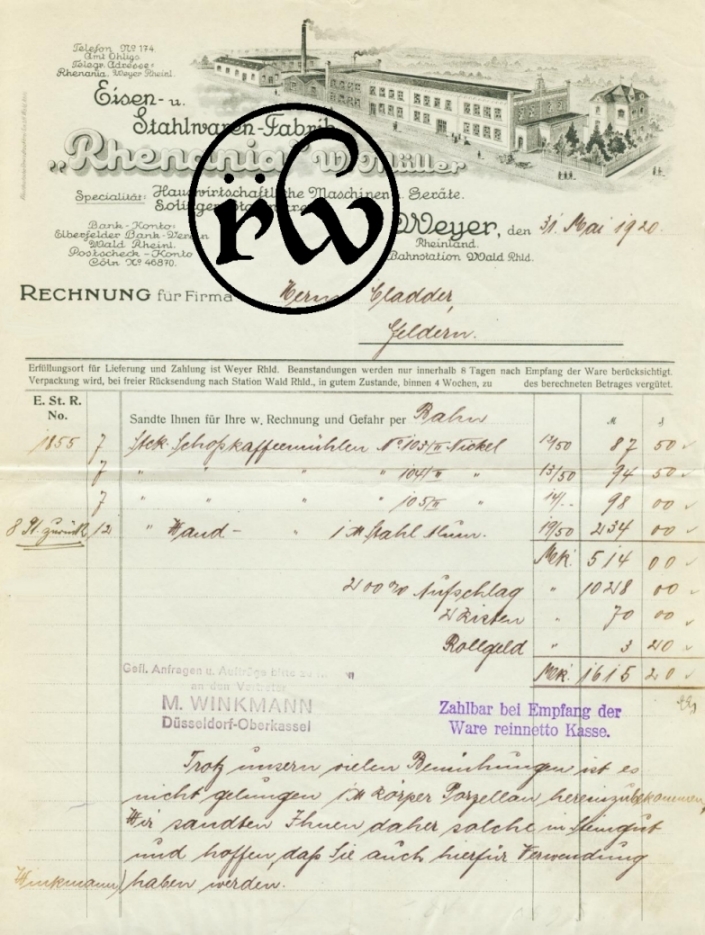 Telefon Nº 174
Amt Ohligs
Telegr. Adresse:
Rhenania, Weyer Rheinl.
Eisen- u.
Stahlwaren-Fabrik
„Rhenania" W. Müller
Specialität: Hauswirtschaftliche Maschinen u. Geräte.
Solinger
Bank-Konto:
Elberfelder Bank-Verein
Wald Rheinl.
Postscheck-Konto
Cöln Nº 46870.
rw
Weyer, den 31. Mai 1920.
Rheinland.
Bahnstation Wald Rhld.
RECHNUNG für Firma Herrn Cladder,
Geldern.
Erfüllungsort für Lieferung und Zahlung ist Weyer Rhld. Beanstandungen werden nur innerhalb 8 Tagen nach Empfang der Ware berücksichtigt.
Verpackung wird, bei freier Rücksendung nach Station Wald Rhld., in gutem Zustande, binnen 4 Wochen, zu des berechneten Betrages vergütet.
E. St. R.
No.
Sandte Ihnen für Ihre w. Rechnung und Gefahr per Bahn
1855 7 Stck. Schoßkaffeemühlen Nº 103/II Nickel 12/50 87 50
7 " " " 104/II " 13/50 94 50
7 " " " 105/II " 14/.. 98 00
8 St. zurück 12 " Wand- " 1 M Stahl 19/50 234 00
Mk. 514 00
200 % Aufschlag " 1028 00
2 Kisten " 70 00
Rollgeld " 3 20
Mk. 1615 20
Gefl. Anfragen u. Aufträge bitte
an den Vertreter
M. WINKMANN
Düsseldorf-Oberkassel
Zahlbar bei Empfang der
Ware reinnetto Kasse.
Trotz unsern vielen Bemühungen ist es
nicht gelungen 1 M Körper Porzellan hereinzubekommen,
Wir sandten Ihnen daher solche in Steingut
und hoffen, daß Sie auch hierfür Verwendung
Winkmann) haben werden.